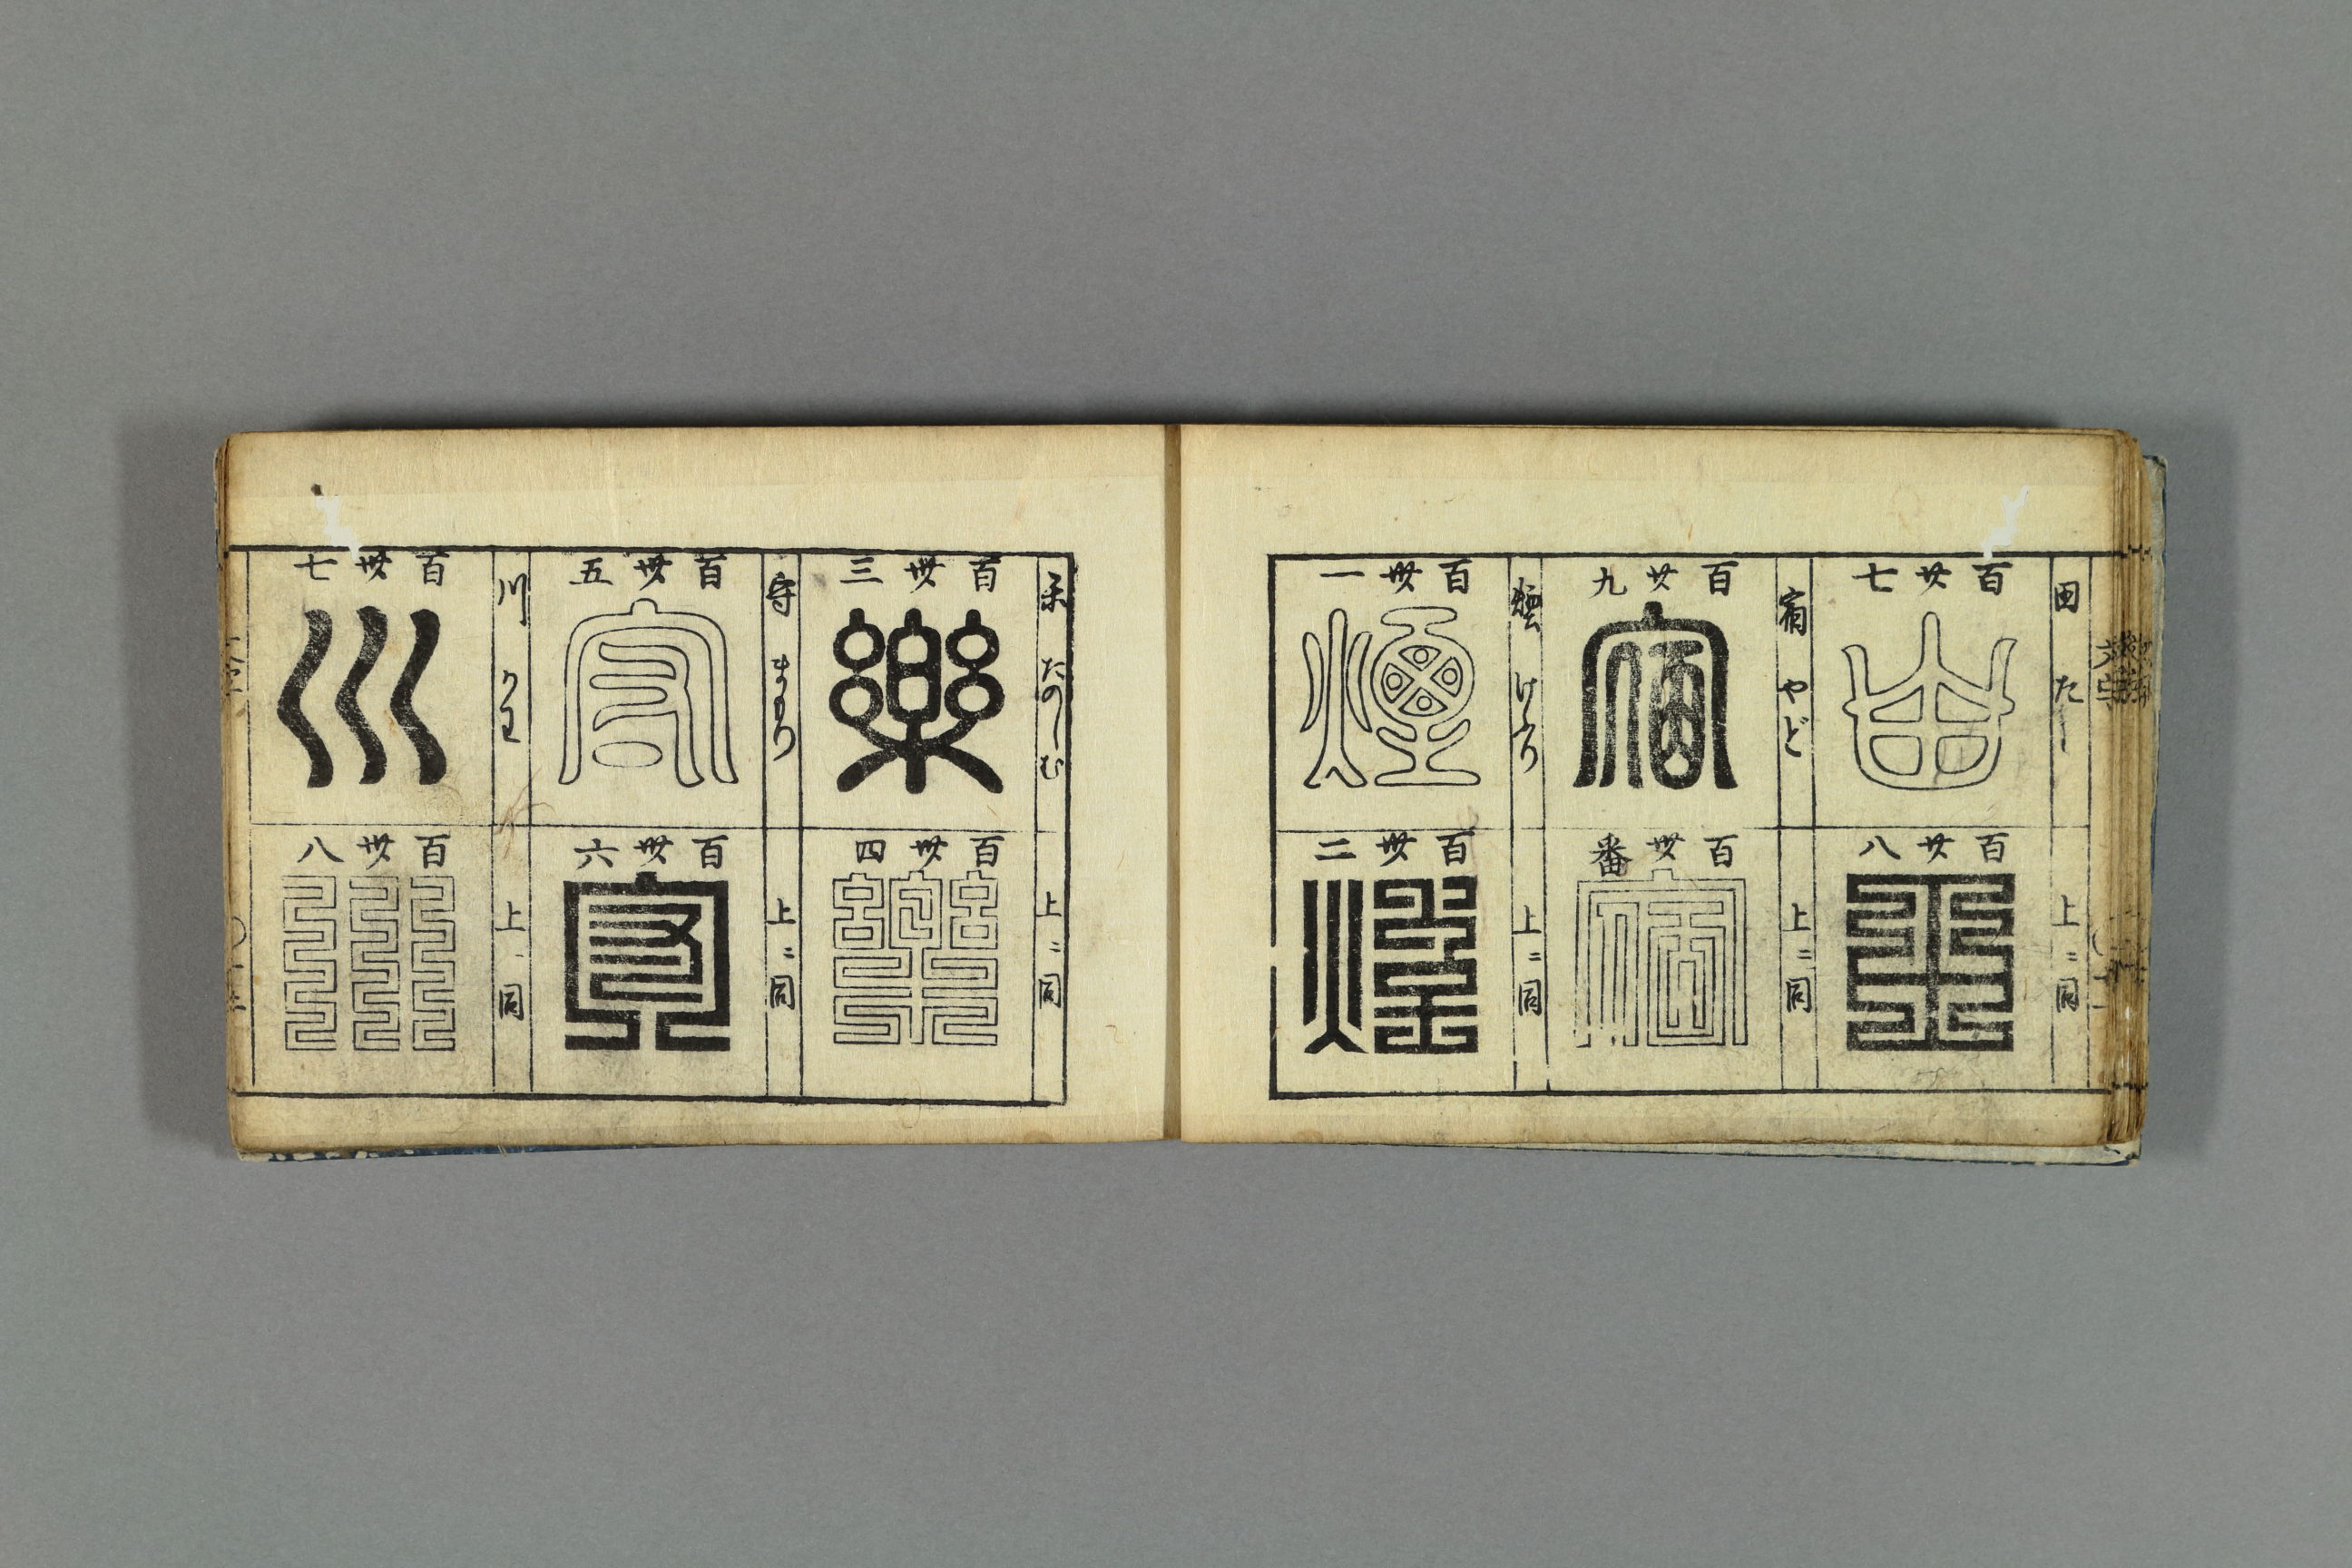 田 た
百廿七
上ニ同
百廿八
宿 やど
百廿九
宿
上ニ同
百卅番
宿
煙 けふり
百卅一
煙
上ニ同
百卅二
煙
楽 たのしむ
百卅三
樂
上ニ同
百卅四
樂
守 まもり
百卅五
守
上ニ同
百卅六
守
川 かわ
百卅七
川
上ニ同
百卅八
川